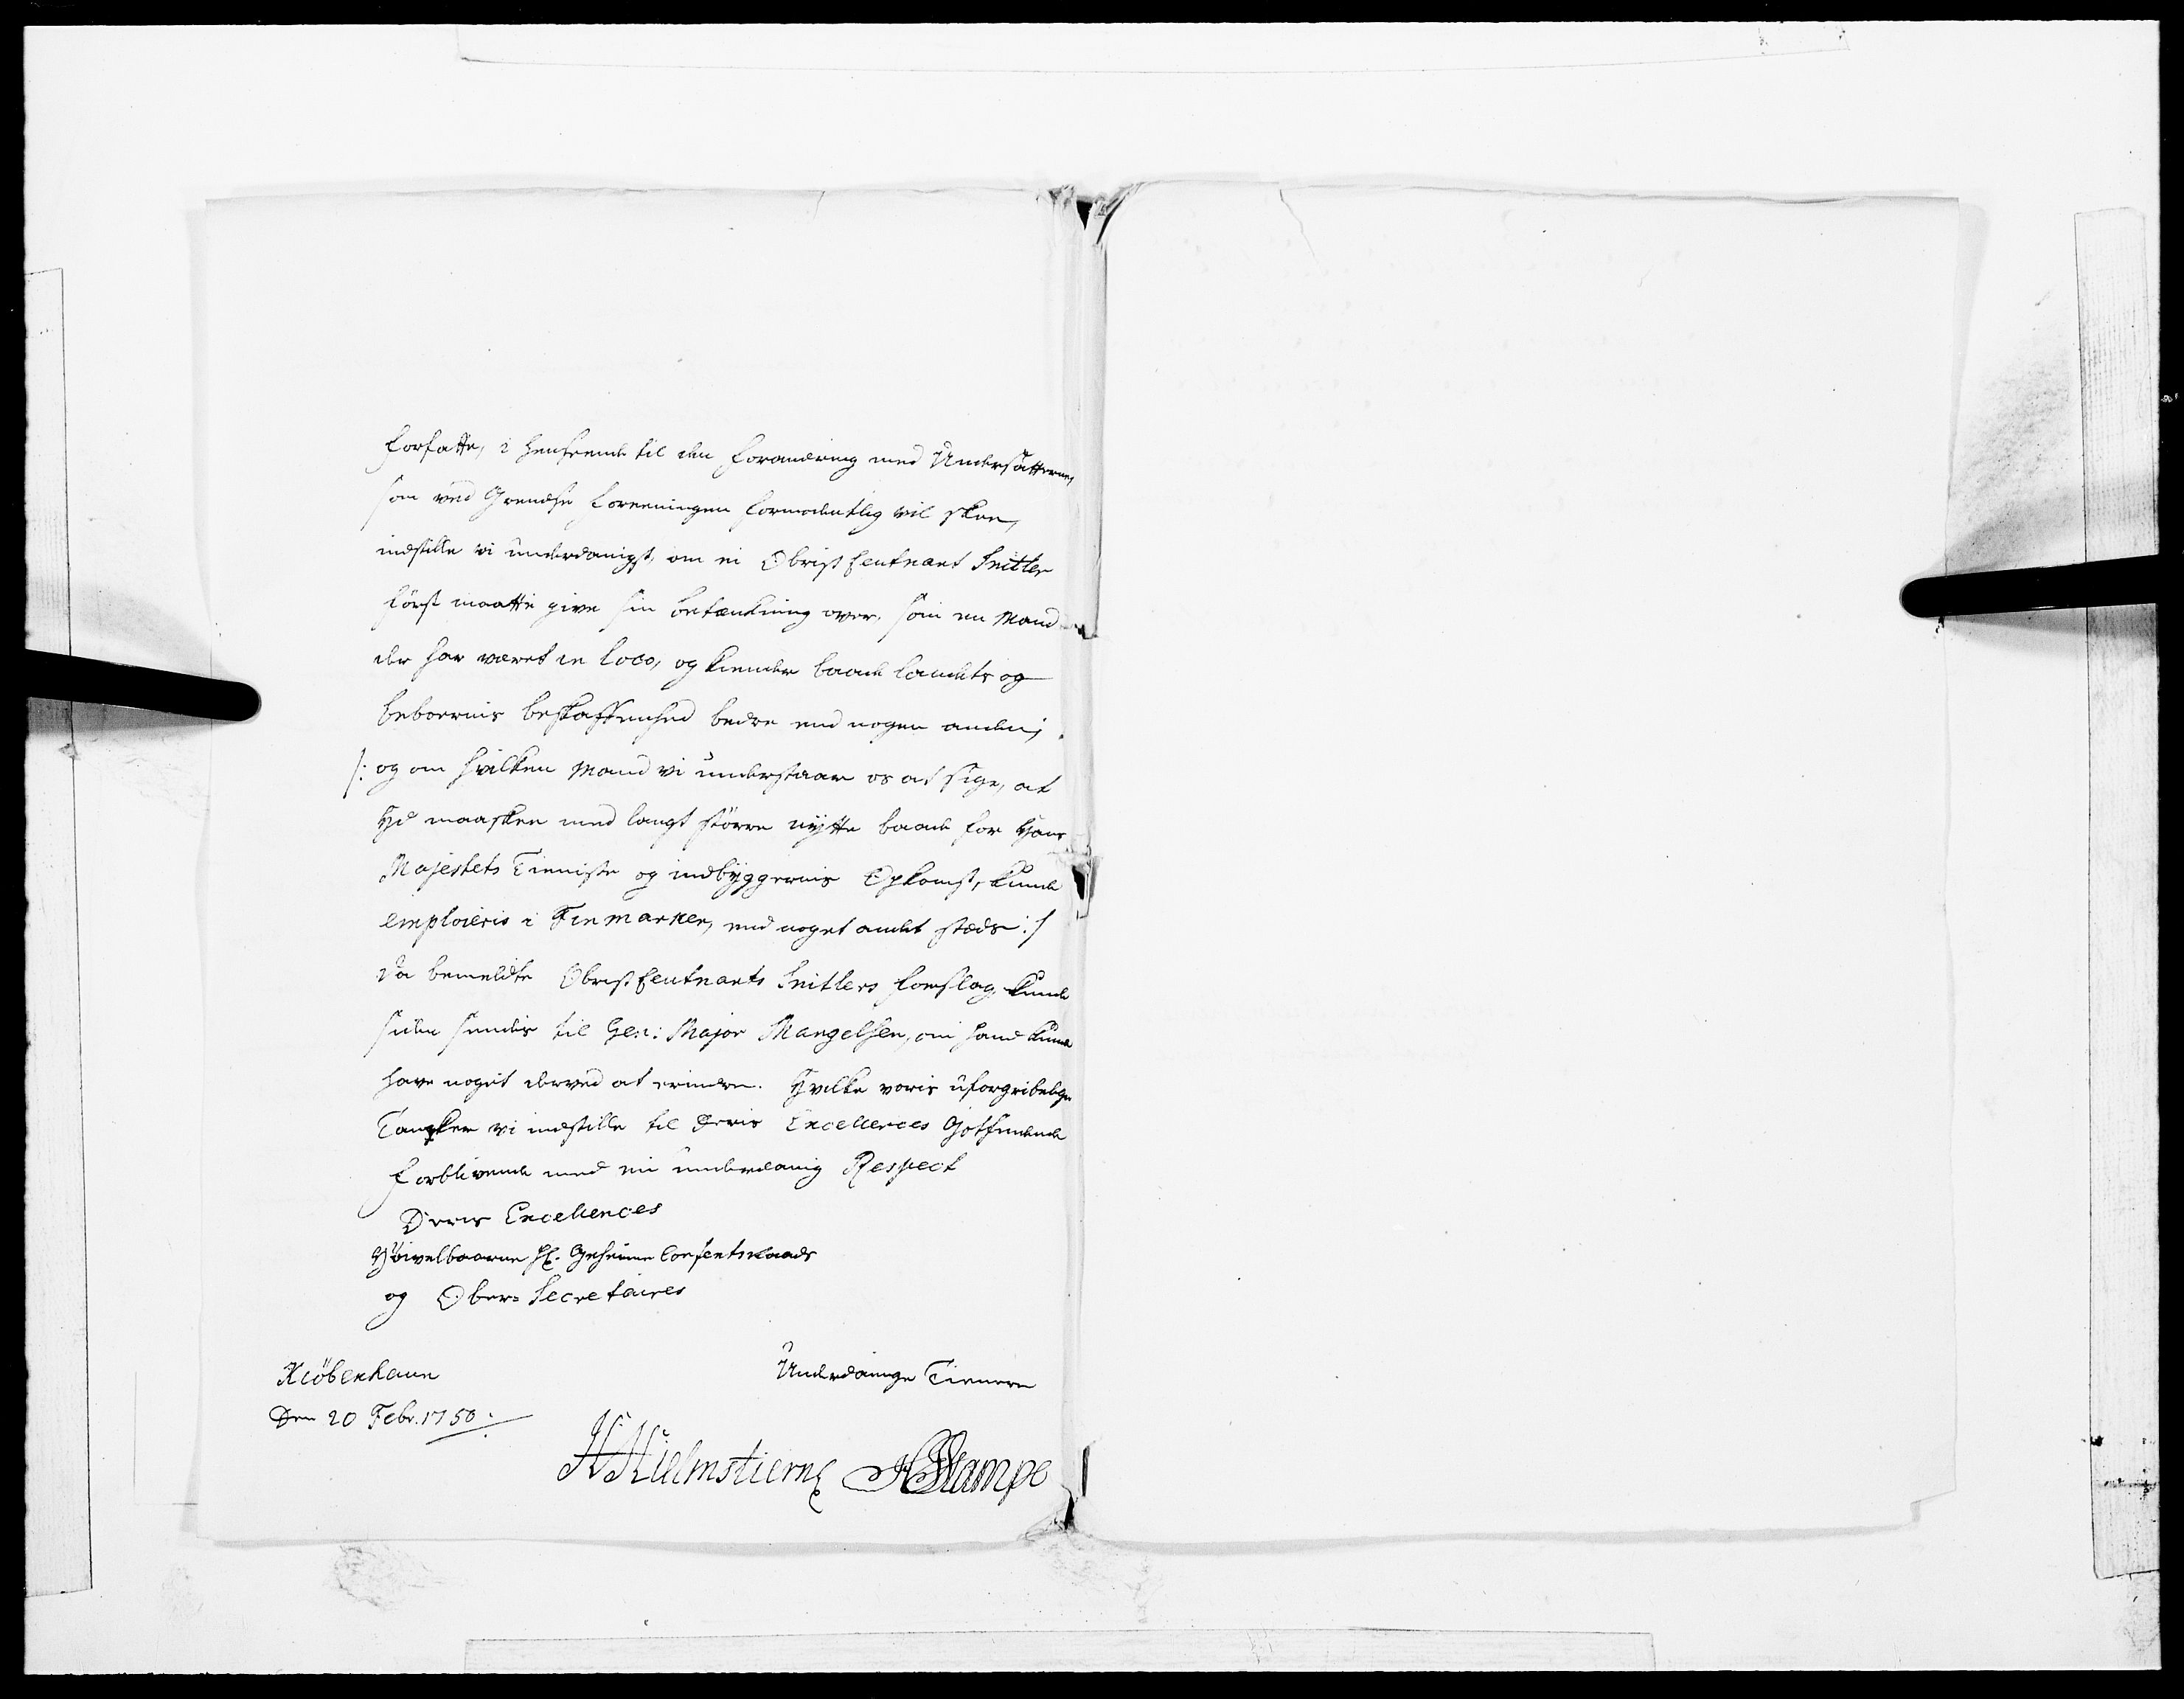 forfatte, i henseende til den forandring med Undersåtterne,
som ved Grendse foreeningen formodentlig vil skee,
indstille vi underdanigst, om ei Obrist Leutnant Snitler
först maatte give sin betænkning over, som en Mand
der har været in loco, og kiender baade landets og
beboernis beskaffenhed bedre end nogen anden;
/: og om hvilken Mand vi understaar os at sige, at
Hd maaskee med langt större nÿtte baade for Hans
Majestets Tieniste og indbÿggernis Opkomst, kunde
emploieris i Finmarken, end noget andet stæds :/
Da bemeldte Obrist Leutnants Snitlers forslag kunde
siden sendis til Gen: Major Mangelsen, om hand kunde
have noget derved at erindre. Hvilke voris uforgribelige
Tanker vi indstille til Deris Excellences Gotfindende
forblivende med en underdanig Respect
Deris Excellences
Höivelbaarne Hr. Geheime Conferentsraads
og Ober=Secretaires
Kiöbenhaun
Den 20 Febr. 1750.
Underdanige Tienere
H Hielmstierne HStampe